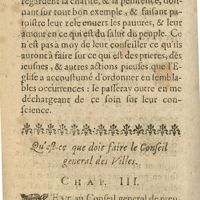 regardent la charité, & la penitence, don-
nant sur tout bon exemple, & faisant pa-
roistre leur zele enuers les pauures, & leur
amour en ce qui est du salut du peuple. Ce
n'est pas à moy de leur conseiller ce qu'ils
auront à faire sur ce qui est des prieres, des
jeusnes, & autres actions pieuses que l'E-
glise a accoustumé d'ordonner en sembla-
bles occurrences : ie passeray outre en me
déchargeant de ce soin sur leur con-
science.
Qu'est-ce que doit faire le Conseil
general des Villes.
CHAP. III.
au Conseil general de